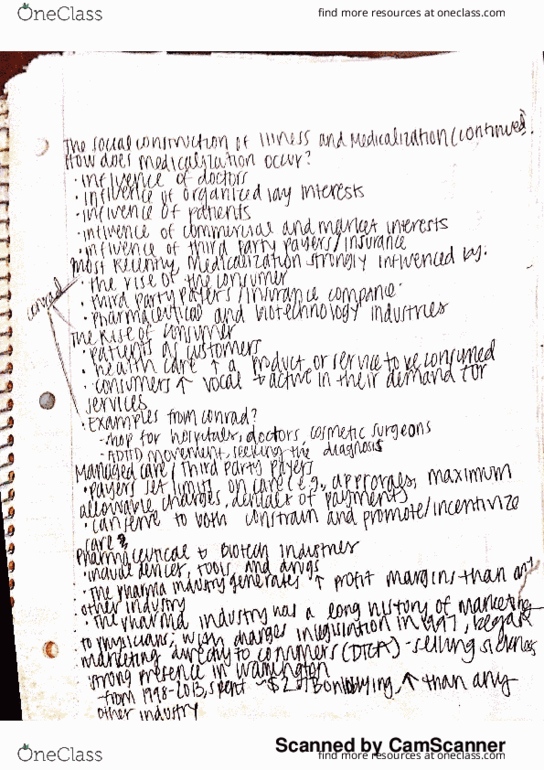 OneClass
find more resources at oneclass.com
The social construction of Illness and Medicalization (continued).
How does medicalization occur?
· influence of doctors
· influence of organized lay interests
· influence of patients
· influence of commercial and market interests
· influence of third party payers/insurance
most recently, medicalization strongly influenced by:
· the rise of the consumer
· third party payers/insurance companie
conrad
· pharmaceutical and biotechnology industries
The rise of consumer
· patients as customers
· health care ↑ a product or service to be consumed
· consumers ↑ vocal + active in their demand for
services
· Examples from conrad?
- shop for hospitals, doctors, cosmetic surgeons
- ADHD movement, seeking the diagnosis
Managed care/Third party payers
· payers set limits on care (e.g., approvals, maximum
allowable charges, denials of payments
· can serve to both constrain and promote/incentivize
care
Pharmaceutical + Biotech Industries
devices, tools, and drugs
· The pharma industry generates ↑ profit margins than any
other industry
· The pharma industry has a long history of marketing
to physicians; with changes in legislation in 1997, began
marketing directly to consumers (DTCA) - selling sickness
· strong presence in Washington
- from 1998-2013, spent lobbying, ↑ than any
other industry
Scanned by CamScanner
OneClass
find more resources at oneclass.com